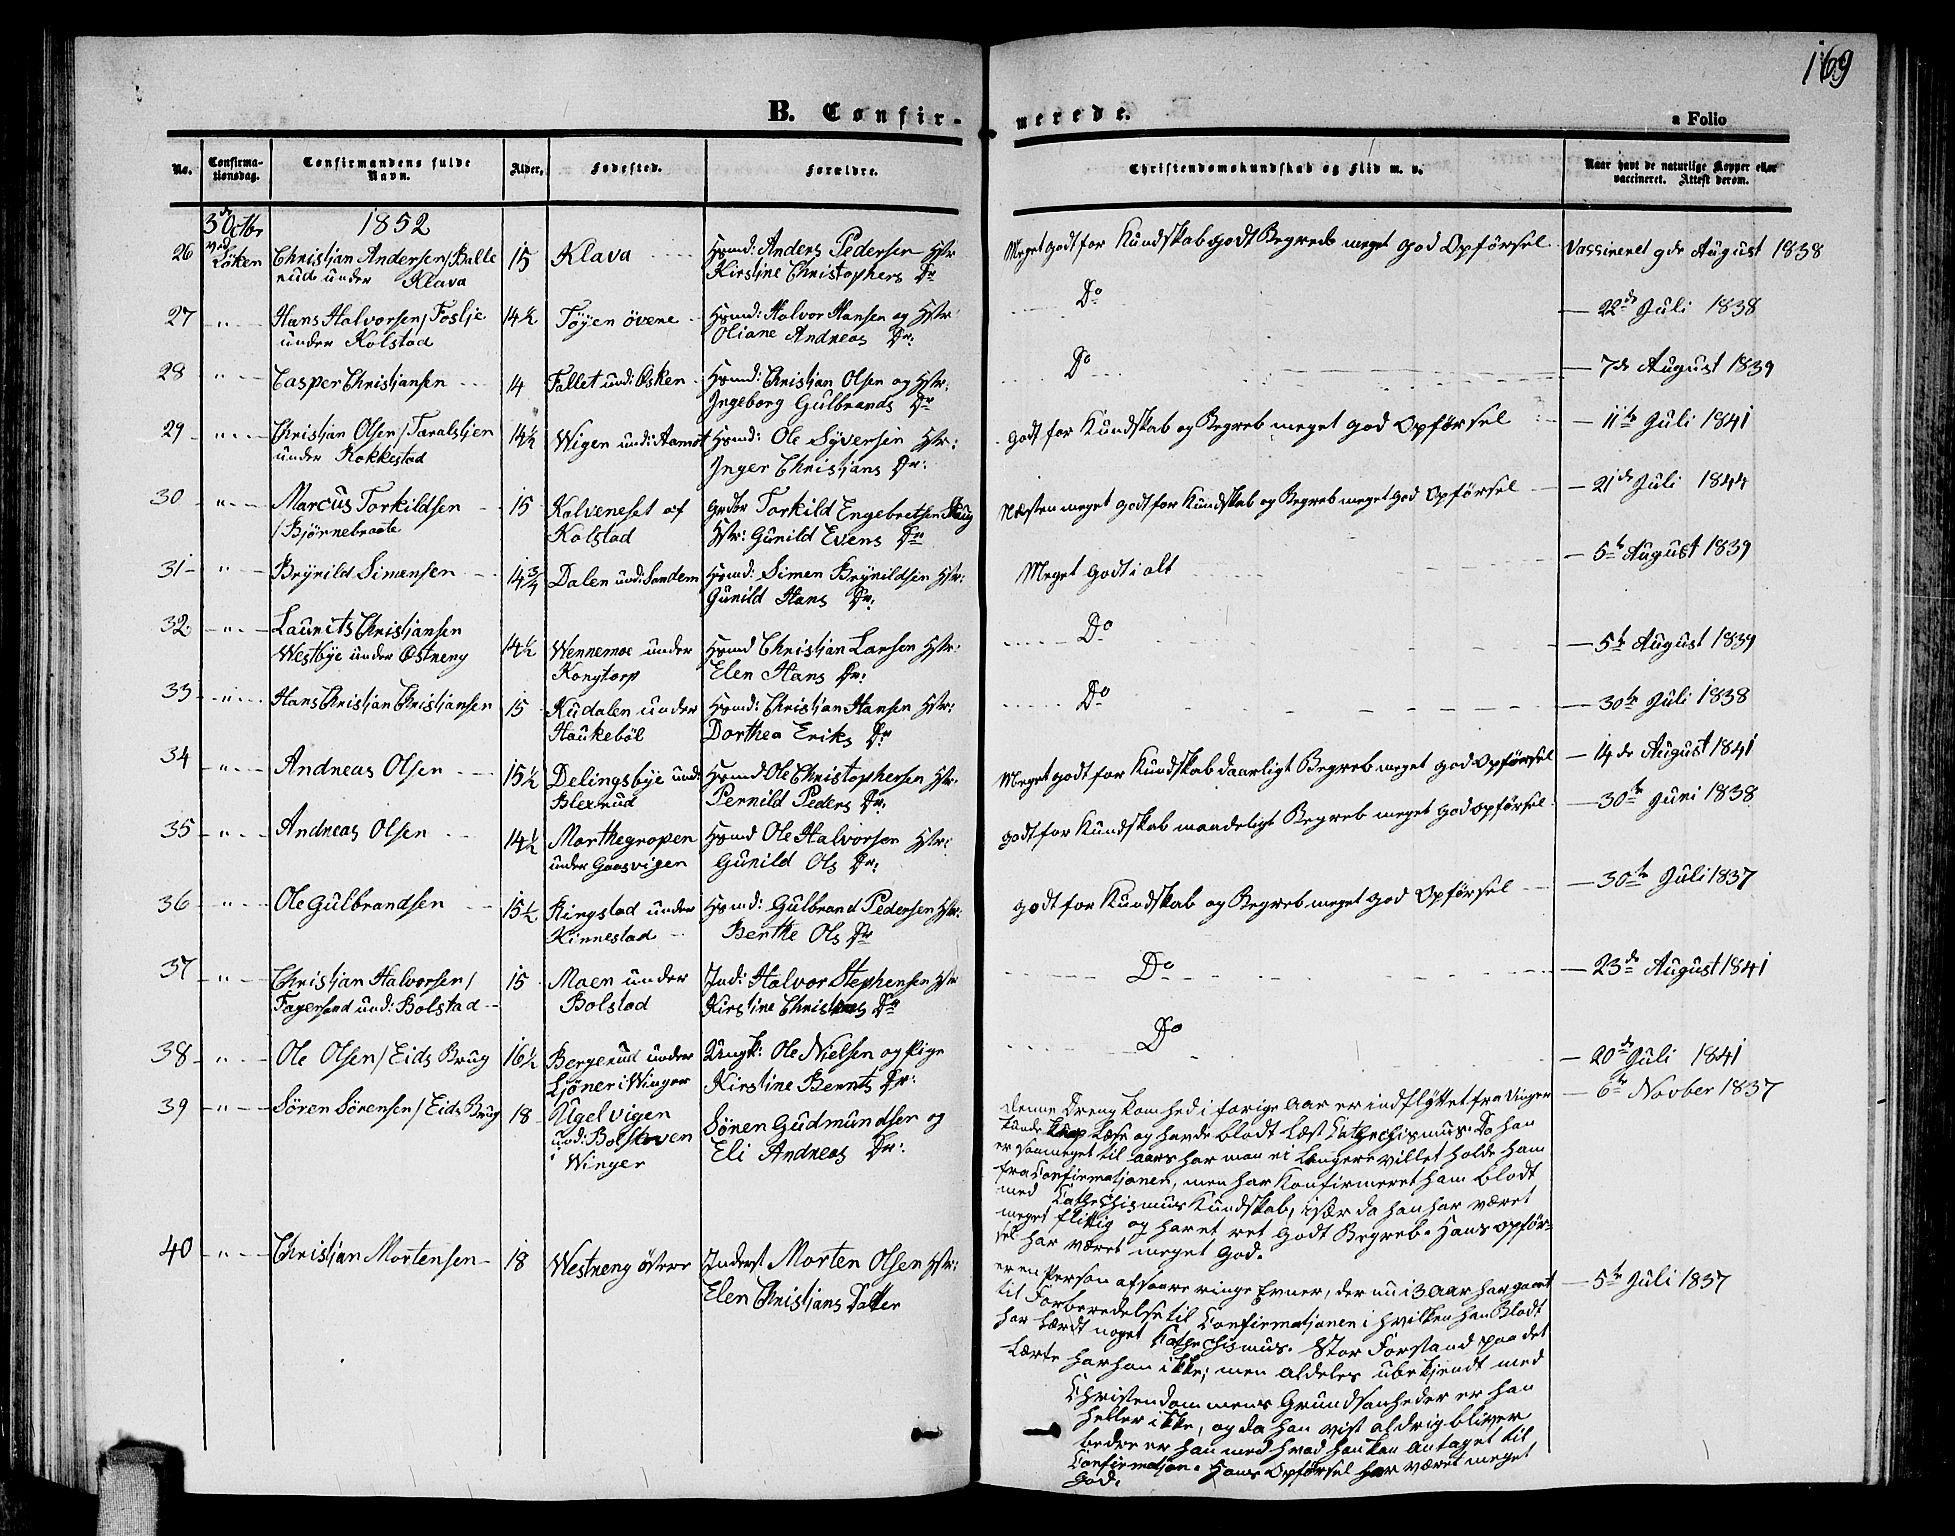 169
B. Confir-
merede.
a Folio
No.
Confirma-
tionsdag.
Confirmandens fulde
Navn.
Alder.
Fødested.
Forældre.
Christendomskundskab og Flid m. v.
Naar havt de naturlige Kopper eller
vaccineret. Attest derom.
3de Octbr
ved
Löken
1852
26
Christjan Andersen/Balle
rud under Klava
15
Klava
Hsmd: Anders Pedersen Hstr
Kirstine Christophers Dr
Meget godt for Kundskab godt Begreb meget god Opförsel
Vassineret 9de August 1838
27 " Hans Halvorsen/Foslje
under Kolstad
14½
Töyen övene
Hsmd: Halvor Hansen og Hstr:
Oliane Andreas Dr:
Do
22de Juli 1838
28 " Casper Christjansen
14
Fallet und: Osken
Hsmd: Christjan Olsen og Hstr:
Ingeborg Gulbrands Dr
Do
7de August 1839
29 " Christjan Olsen/Taralstjen
under Kokkestad
14½
Wigen und: Aamot
Hsmd: Ole Syversen Hstr:
Inger Christjans Dr:
godt for Kundskab og Begreb meget god Opförsel
11te Juli 1841
30 " Marcus Torkildsen
/Bjørnebraate
15
Kalveneset af
Kolstad
Grdbr Torkild Engebretsen Skug
Hstr: Gunild Evens Dr
Næsten meget godt for Kundskab og Begreb meget god Opförsel
21de Juli 1844
31 " Brynild Simensen
14¾
Dalen und: Sandem
Hsmd: Simen Brynildsen Hstr:
Gunild Hans Dr:
Meget godt i alt
5te August 1839
32 " Laurits Christjansen
Westbye under Ostneng
14½
Wennemoe under
Kongtorp
Hsmd Christjan Larsen Hstr:
Elen Hans Dr:
Do
5te August 1839
33 " Hans Christjan Christjansen
15
Kudalen under
Haukeböl
Hsmd: Christjan Hansen Hstr:
Dorthea Eriks Dr
Do
30te Juli 1838
34 " Andreas Olsen
15½
Delingsbye und:
Blexrud
Hsmd Ole Christophersen Hstr:
Pernild Peders Dr:
Meget godt for Kundskab daarligt Begreb meget god Opförsel
14de August 1841
35 " Andreas Olsen
14½
Marthegropen
under Gaasvigen
Hsmd Ole Halvorsen Hstr:
Gunild Ols Dr:
godt for Kundskab maadeligt Begreb meget god Opförsel
30te Juni 1838
36 " Ole Gulbrandsen
15½
Ringstad under
Kinnestad
Hsmd: Gulbrand Pedersen Hstr:
Berthe Ols Dr
godt for Kundskab og Begreb meget god Opförsel
30te Juli 1837
37 " Christjan Halvorsen/
Fagersand und: Bolstad
15
Moen under
Bolstad
Ind: Halvor Stephensen Hstr
Kirstine Christians Dr
Do
23de August 1841
38 " Ole Olsen/Eids Brug
16½
Bergerud under
Ljöner i Winger
Ungk: Ole Nielsen og Pige
Kirstine Bernts Dr:
Do
20de Juli 1841
39 " Sören Sörensen/Eids Brug
18
Ugelvigen
und: Bolstoven
i Winger
Sören Gudmundsen og
Eli Andreas Dr:
denne Dreng kom hed i forige Aar er indflyttet fra Vinger
kunde knap læse og havde blodt læst Cathechismus. Da han
er saa meget til aars har man ei længere villet holde ham
fra Confirmatjonen, men har Konfirmeret ham blodt
med Cathechismus Kundskab, især da han har været
meget flittig og har et ret godt Begreb. Hans opför-
sel har været meget god.
6te Novber 1837
40 " Christjan Mortensen
18
Westneng östere
Inderst Morten Olsen Hstr:
Elen Christjans Datter
er en Person af saare ringe Evner, der nu i 3 Aar har gaaet
til Forberedelse til Confirmatjonen i hvilken han Blodt
har lærdt noget Cathechismus. Stor Forstand paa det
Lærte har han ikke; men aldeles ubekjendt med
Christendommens Grundsanheder er han
heller ikke, og da han vist aldrig bliver
bedre er han med hvad han kan antaget til
Confirmatjon. Hans Opførsel har været meget
god.
5te Juli 1837